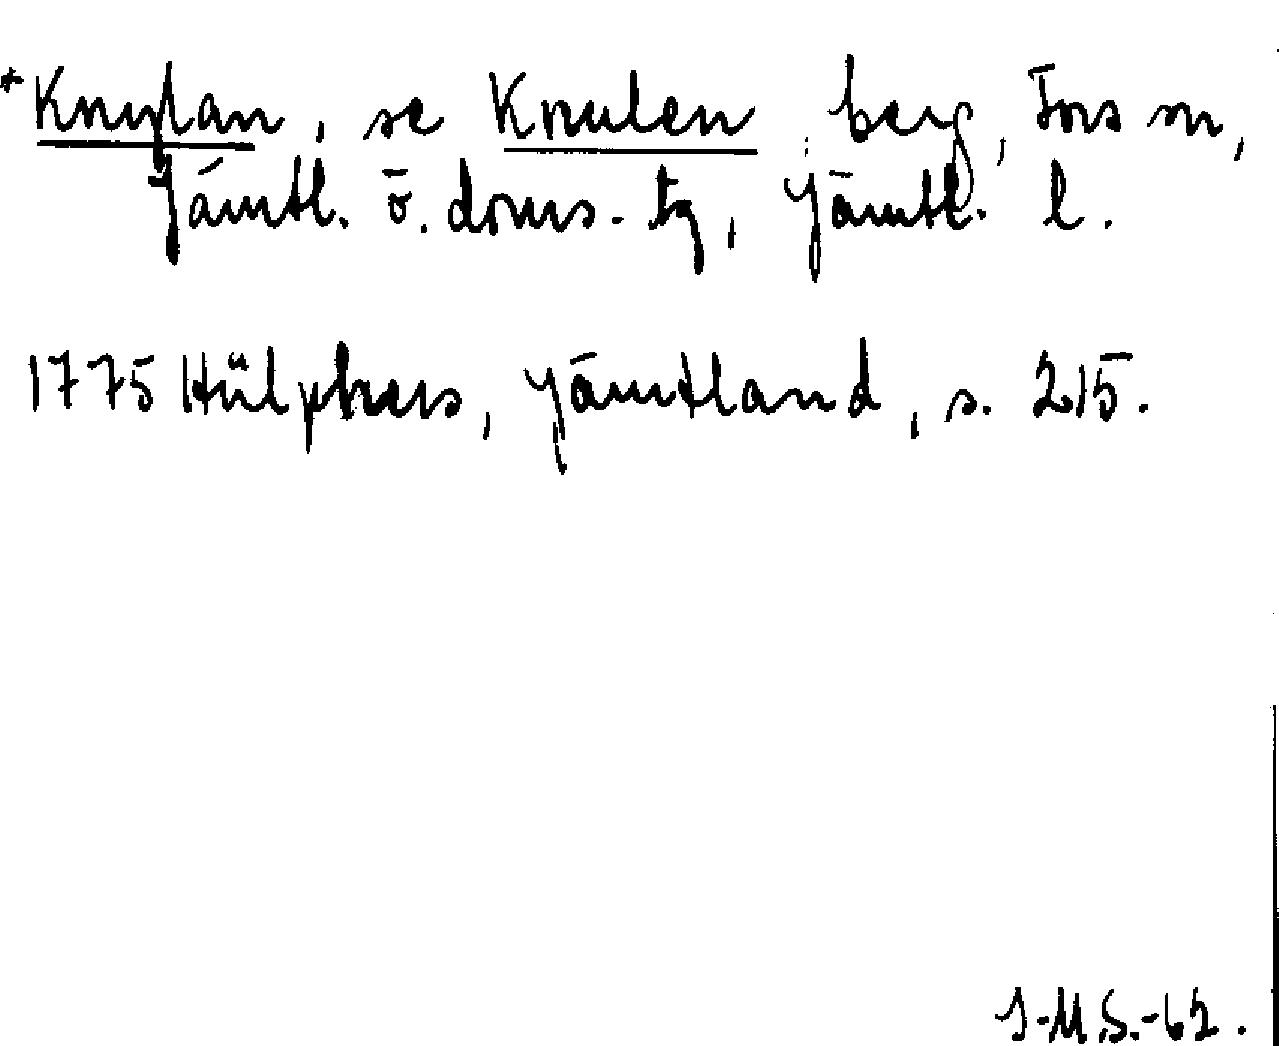 *Knylan, se Knulen, berg, Fors sn,
Jämtl. ö. doms-tg, Jämtl. l.
1775 Hülphers, Jämtland, s. 215.
J-M S.-62.